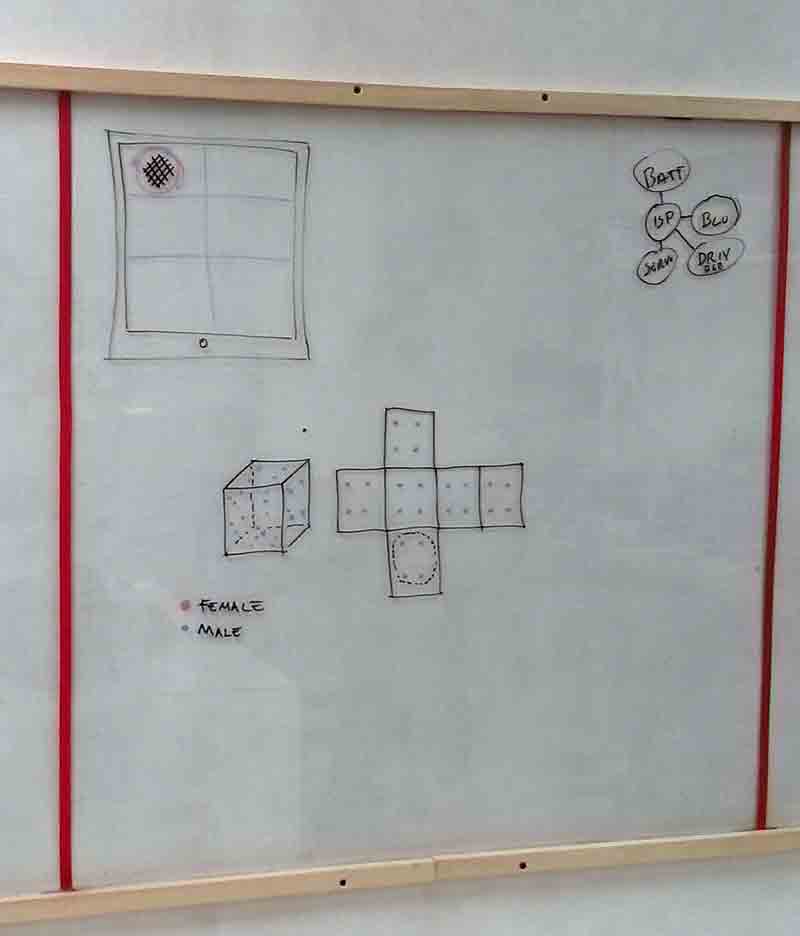 BATT
BLU
SERVO
DRIV
FEMALE
MALE